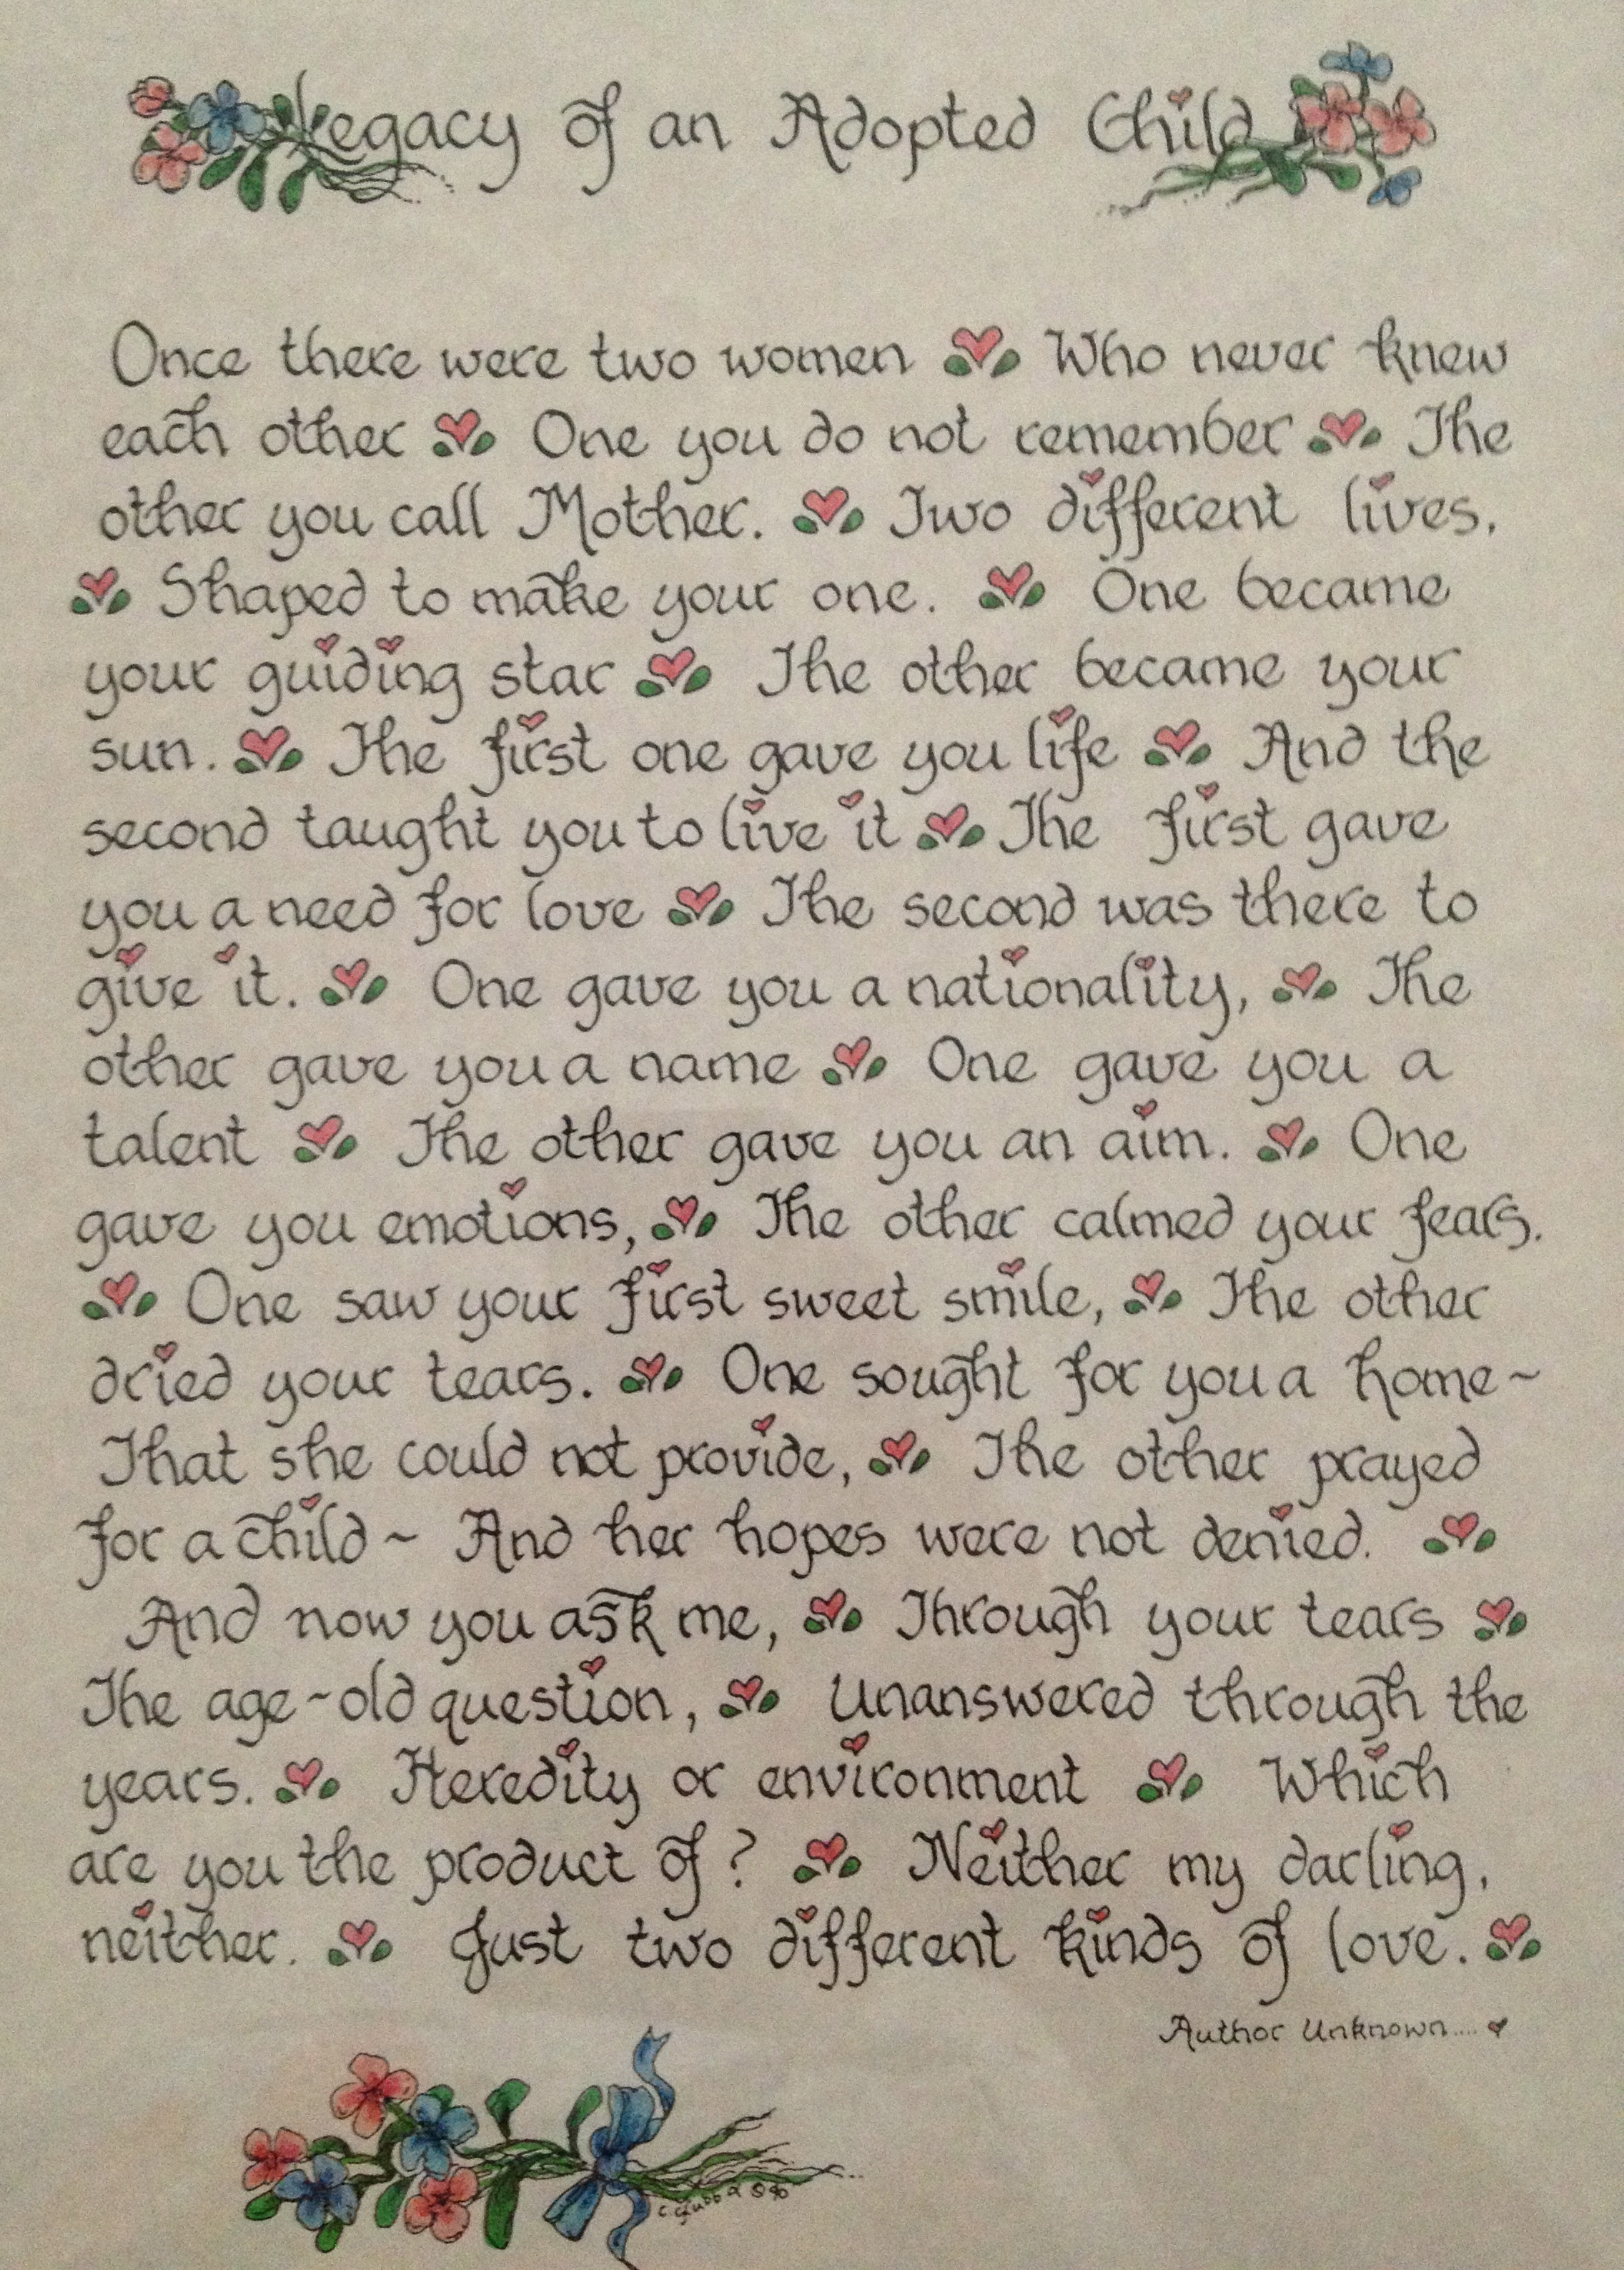 Legacy of an Adopted Child
Once there were two women Who never knew
each other One you do not remember The
other you call Mother. Two different lives,
Shaped to make your one. One became
your guiding star The other became your
sun. The first one gave you life And the
second taught you to live it The first gave
you a need for love The second was there to
give it. One gave you a nationality, The
other gave you a name One gave you a
talent The other gave you an aim. One
gave you emotions, The other calmed your fears.
One saw your first sweet smile, The other
dried your tears. One sought for you a home~
That she could not provide, The other prayed
for a child~ And her hopes were not denied.
And now you ask me, Through your tears
The age~old question, Unanswered through the
years. Heredity or environment Which
are you the product of? Neither my darling,
neither. Just two different kinds of love.
Author Unknown....